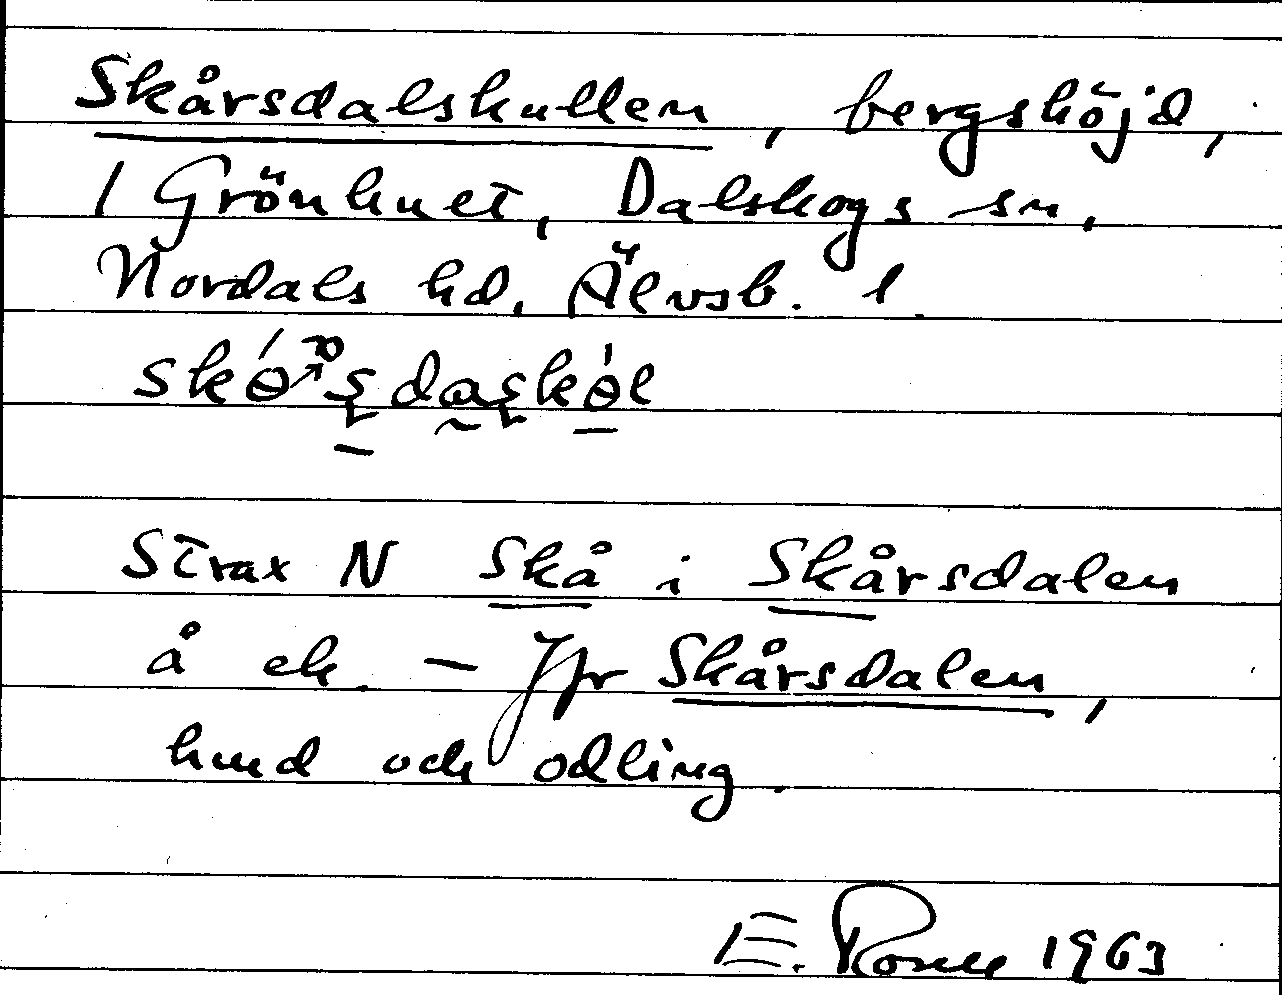 Skårsdalskullen, bergshöjd,
1 Grönhult, Dalskogs sn,
Nordals hd, Älvsb. l.
Strax N Skå i Skårsdalen
å ek. — Jfr Skårsdalen,
hund och odling.
E. 1963